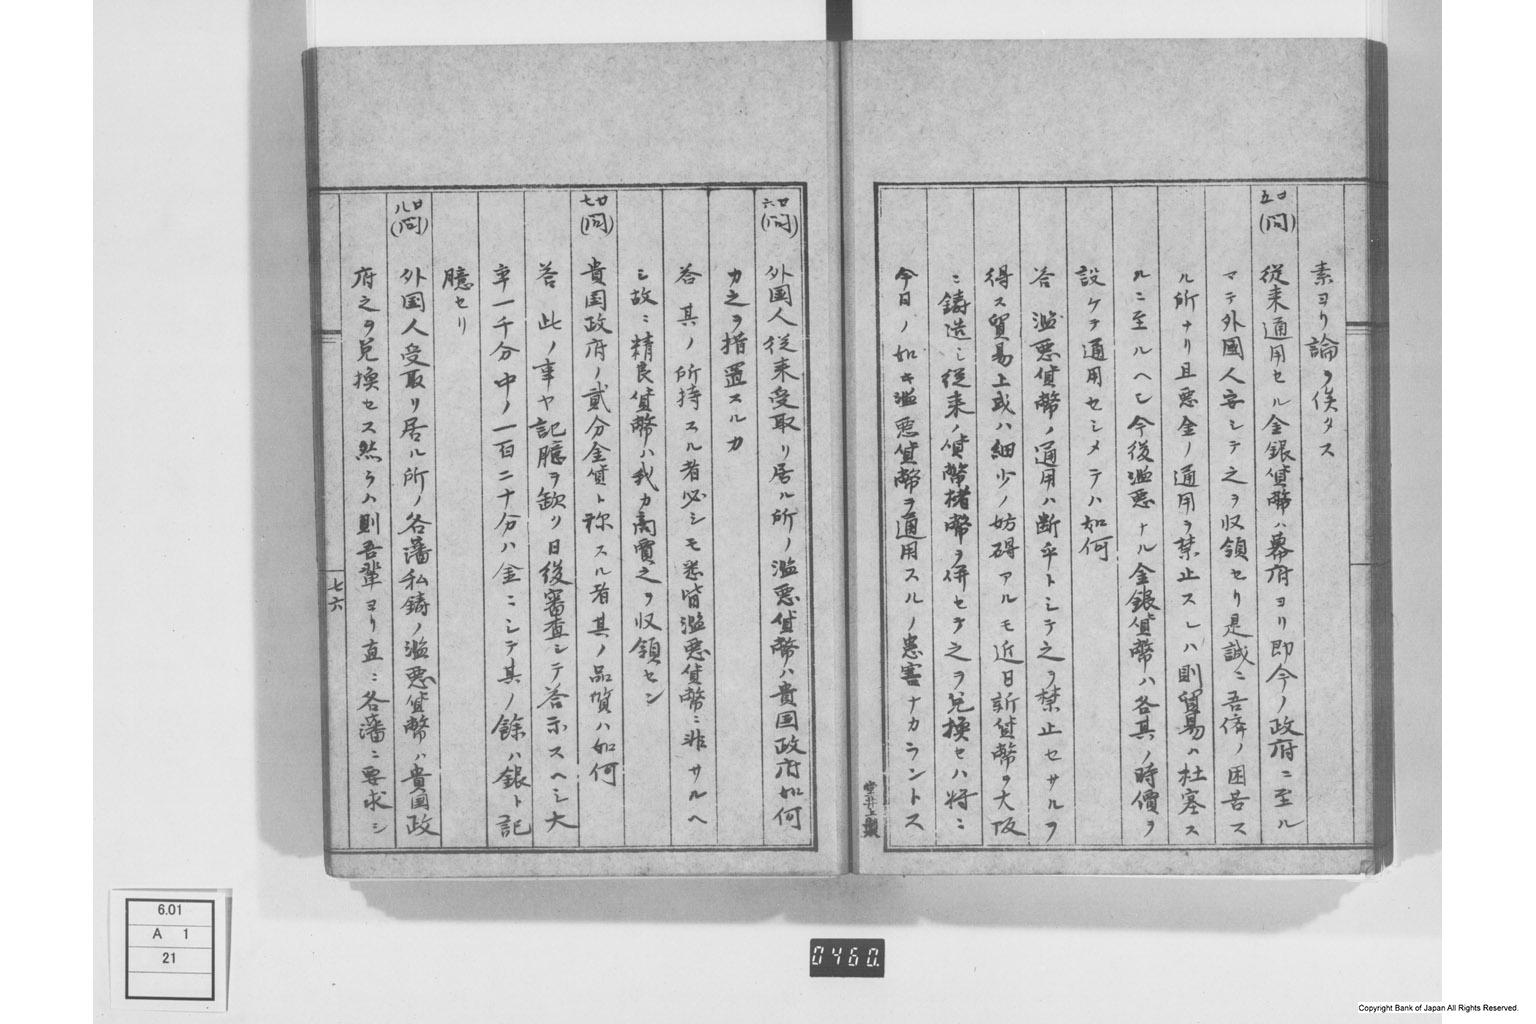 素ヨリ論ヲ俟タス
廿五(問) 従来通用セル金銀貨幣ハ幕府ヨリ即今ノ政府ニ至ル
マテ外國人安シテ之ヲ収領セリ是誠ニ吾儕ノ困苦ス
ル所ナリ且悪金ノ通用ヲ禁止スレハ則貿易ハ杜塞ス
ルニ至ルヘシ今後濫悪ナル金銀貨幣ハ各其ノ時價ヲ
設ケテ通用セシメテハ如何
答 濫悪貨幣ノ通用ハ断乎トシテ之ヲ禁止セサルヲ
得ス貿易上或ハ細少ノ妨碍アルモ近日新貨幣ヲ大阪
ニ鋳造シ従来ノ貨幣楮幣ヲ併セテ之ヲ兌換セハ将ニ
今日ノ如キ濫悪貨幣ヲ通用スルノ患害ナカラントス
廿六(問) 外国人従来受取リ居ル所ノ濫悪貨幣ハ貴国政府如何
カ之ヲ措置スルカ
答 其ノ所持スル者必シモ悉皆濫悪貨幣ニ非サルヘ
シ故ニ精良貨幣ハ我カ商賈之ヲ収領セン
廿七(問) 貴国政府ノ貳分金貨ト称スル者其ノ品質ハ如何
答 此ノ事ヤ記臆ヲ欽リ日後審査シテ答示スヘシ大
率一千分中ノ一百二十分ハ金ニシテ其ノ餘ハ銀ト記
臆セリ
廿八(問) 外国人受取リ居ル所ノ各藩私鋳ノ濫悪貨幣ハ貴国政
府之ヲ兌換セス然ラハ則吾輩ヨリ直ニ各藩ニ要求シ
七六
6.01
A 1
21
0460.
Copyright Bank of Japan All Rights Reserved.